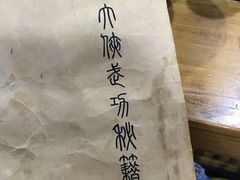 大俠武功秘籍